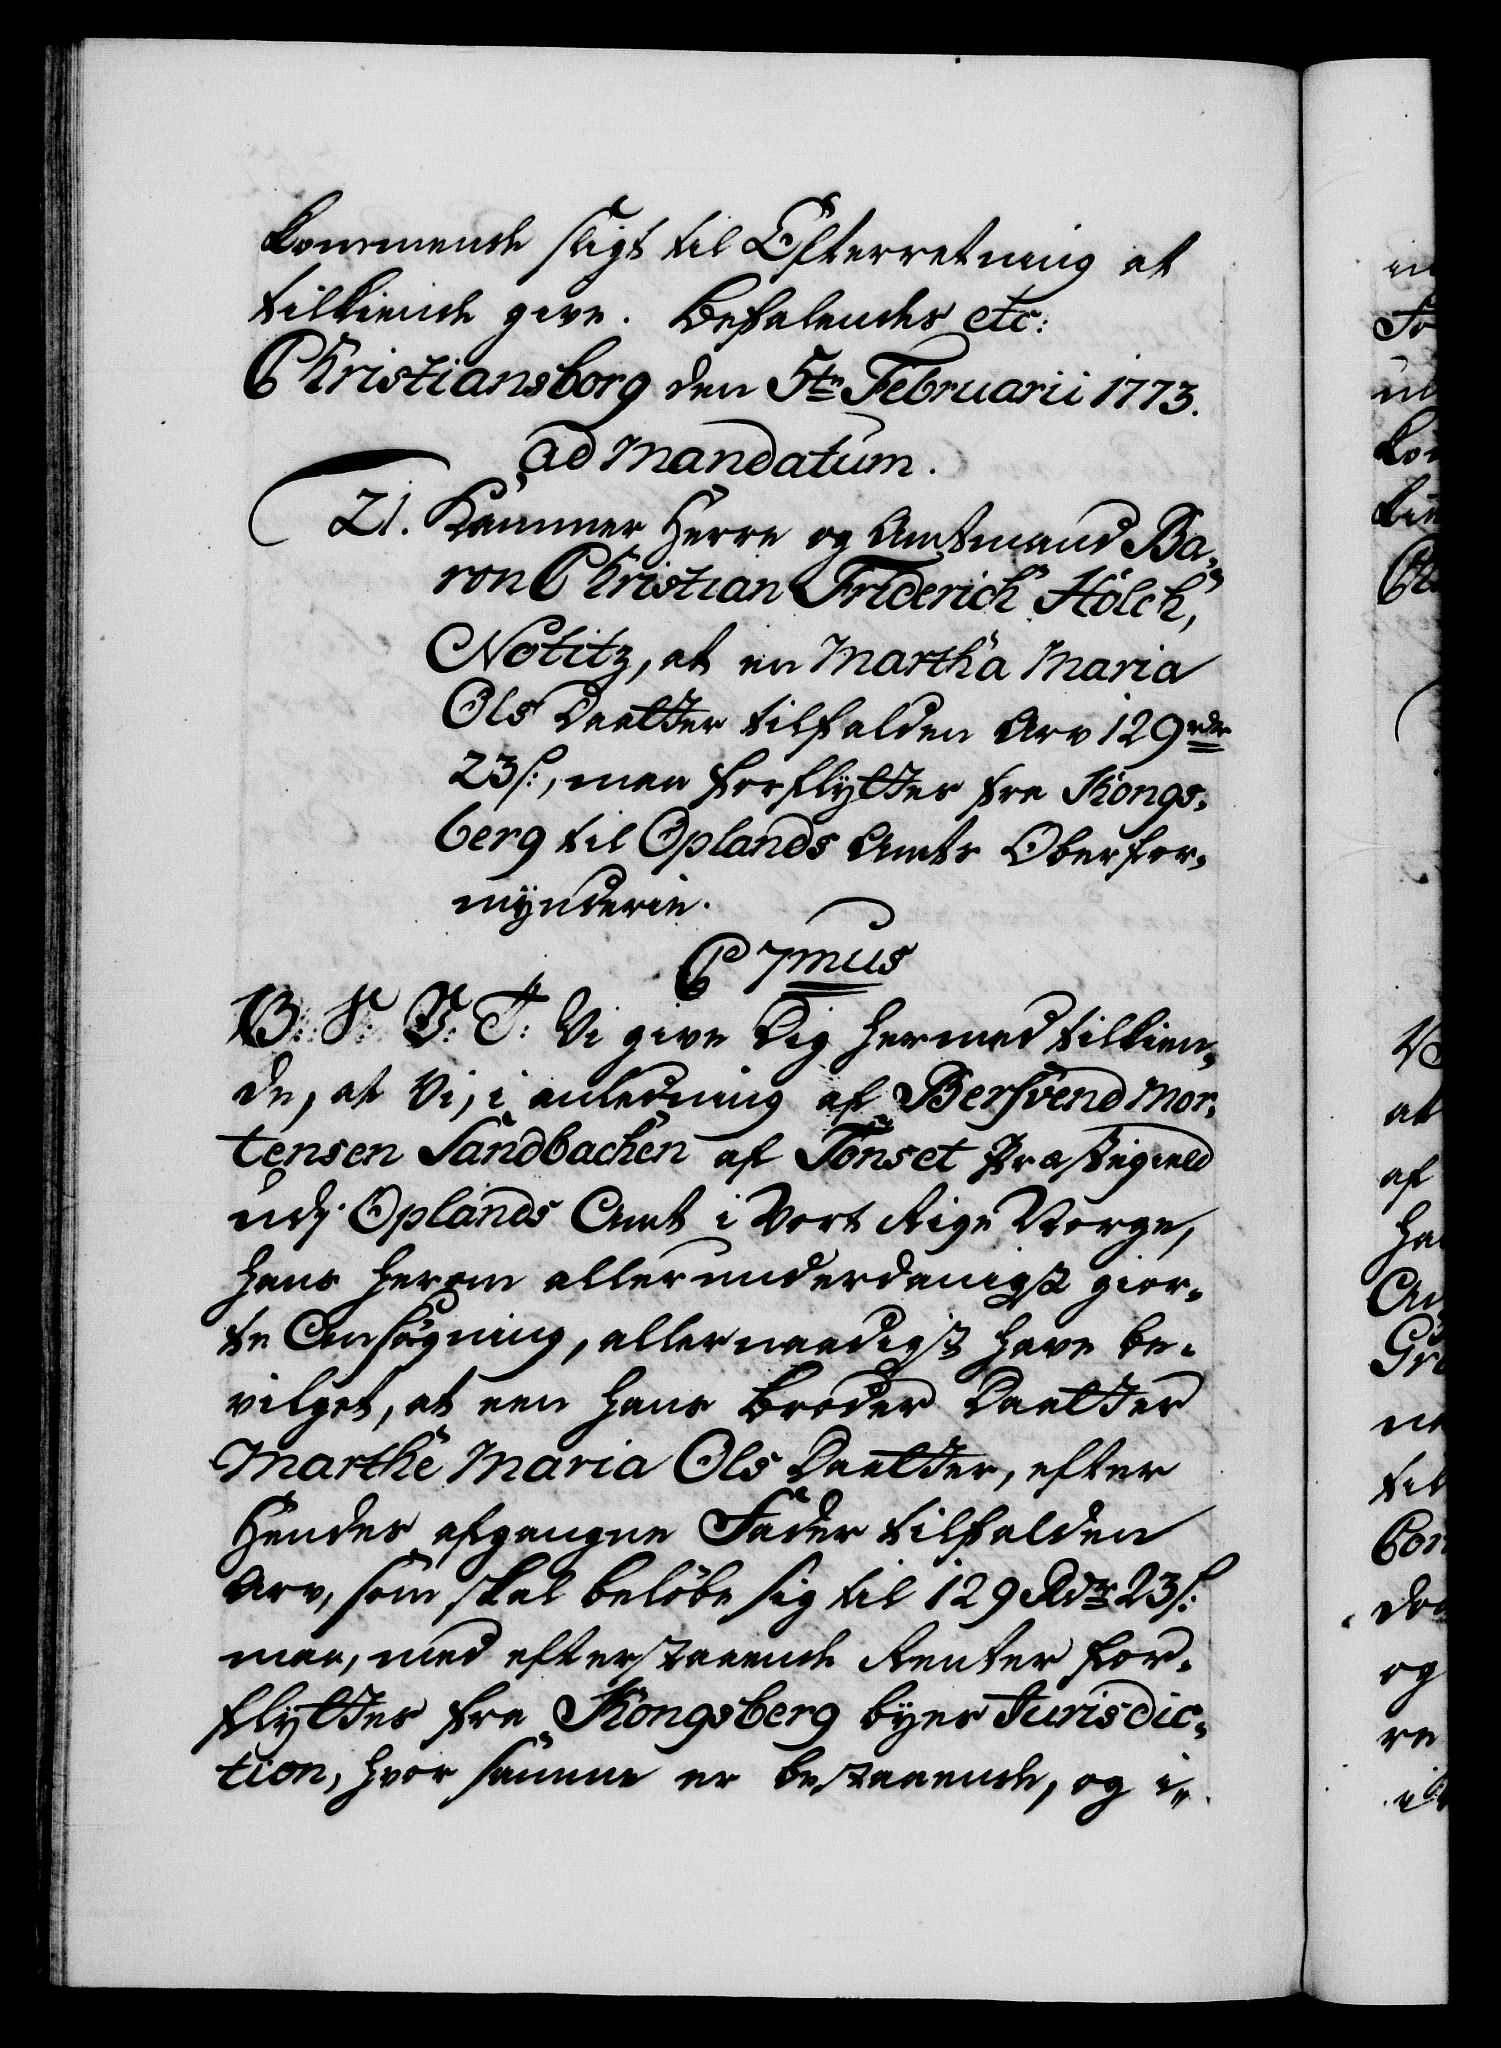 kommende sligt til Efterretning at
tilkiende give. Befalendes etc:
Christiansborg den 5te Februarii 1773.
ad Mandatum.
21. Kammer Herre og Amtmand Ba-
ron Christian Friderich Holck,
Notitz, at en Martha Maria
Ols Daatter tilfalden Arv 129 rdr
23 s:, maa forflyttes fra Kongs-
berg til Oplands Amts Oberfor-
mynderie.
C 7mus
V: S: V: T: Vi give Dig hermed tilkien-
de, at Vi, i anledning af Bersvend Mor-
tensen Sandbachen af Tønset Præstegield
udj Oplands Amt i Vort Rige Norge,
hans herom allerunderdanigst gior-
te Ansøgning, allernaadigst have be-
vilget, at een hans Broder Daatter
Marthe Maria Ols Daatter, efter
Hendes afgangne Fader tilfalden
Arv, som skal beløbe sig til 129 Rdr 23 s:
maa, med efterstaaende Renter for-
flyttes fra Kongsberg byes Jurisdic-
tion, hvor samme er bestaaende, og i